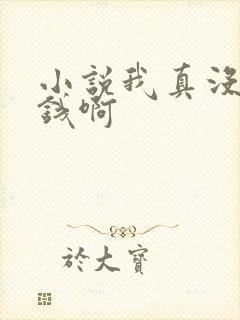 小說我真沒
錢啊
於大寶